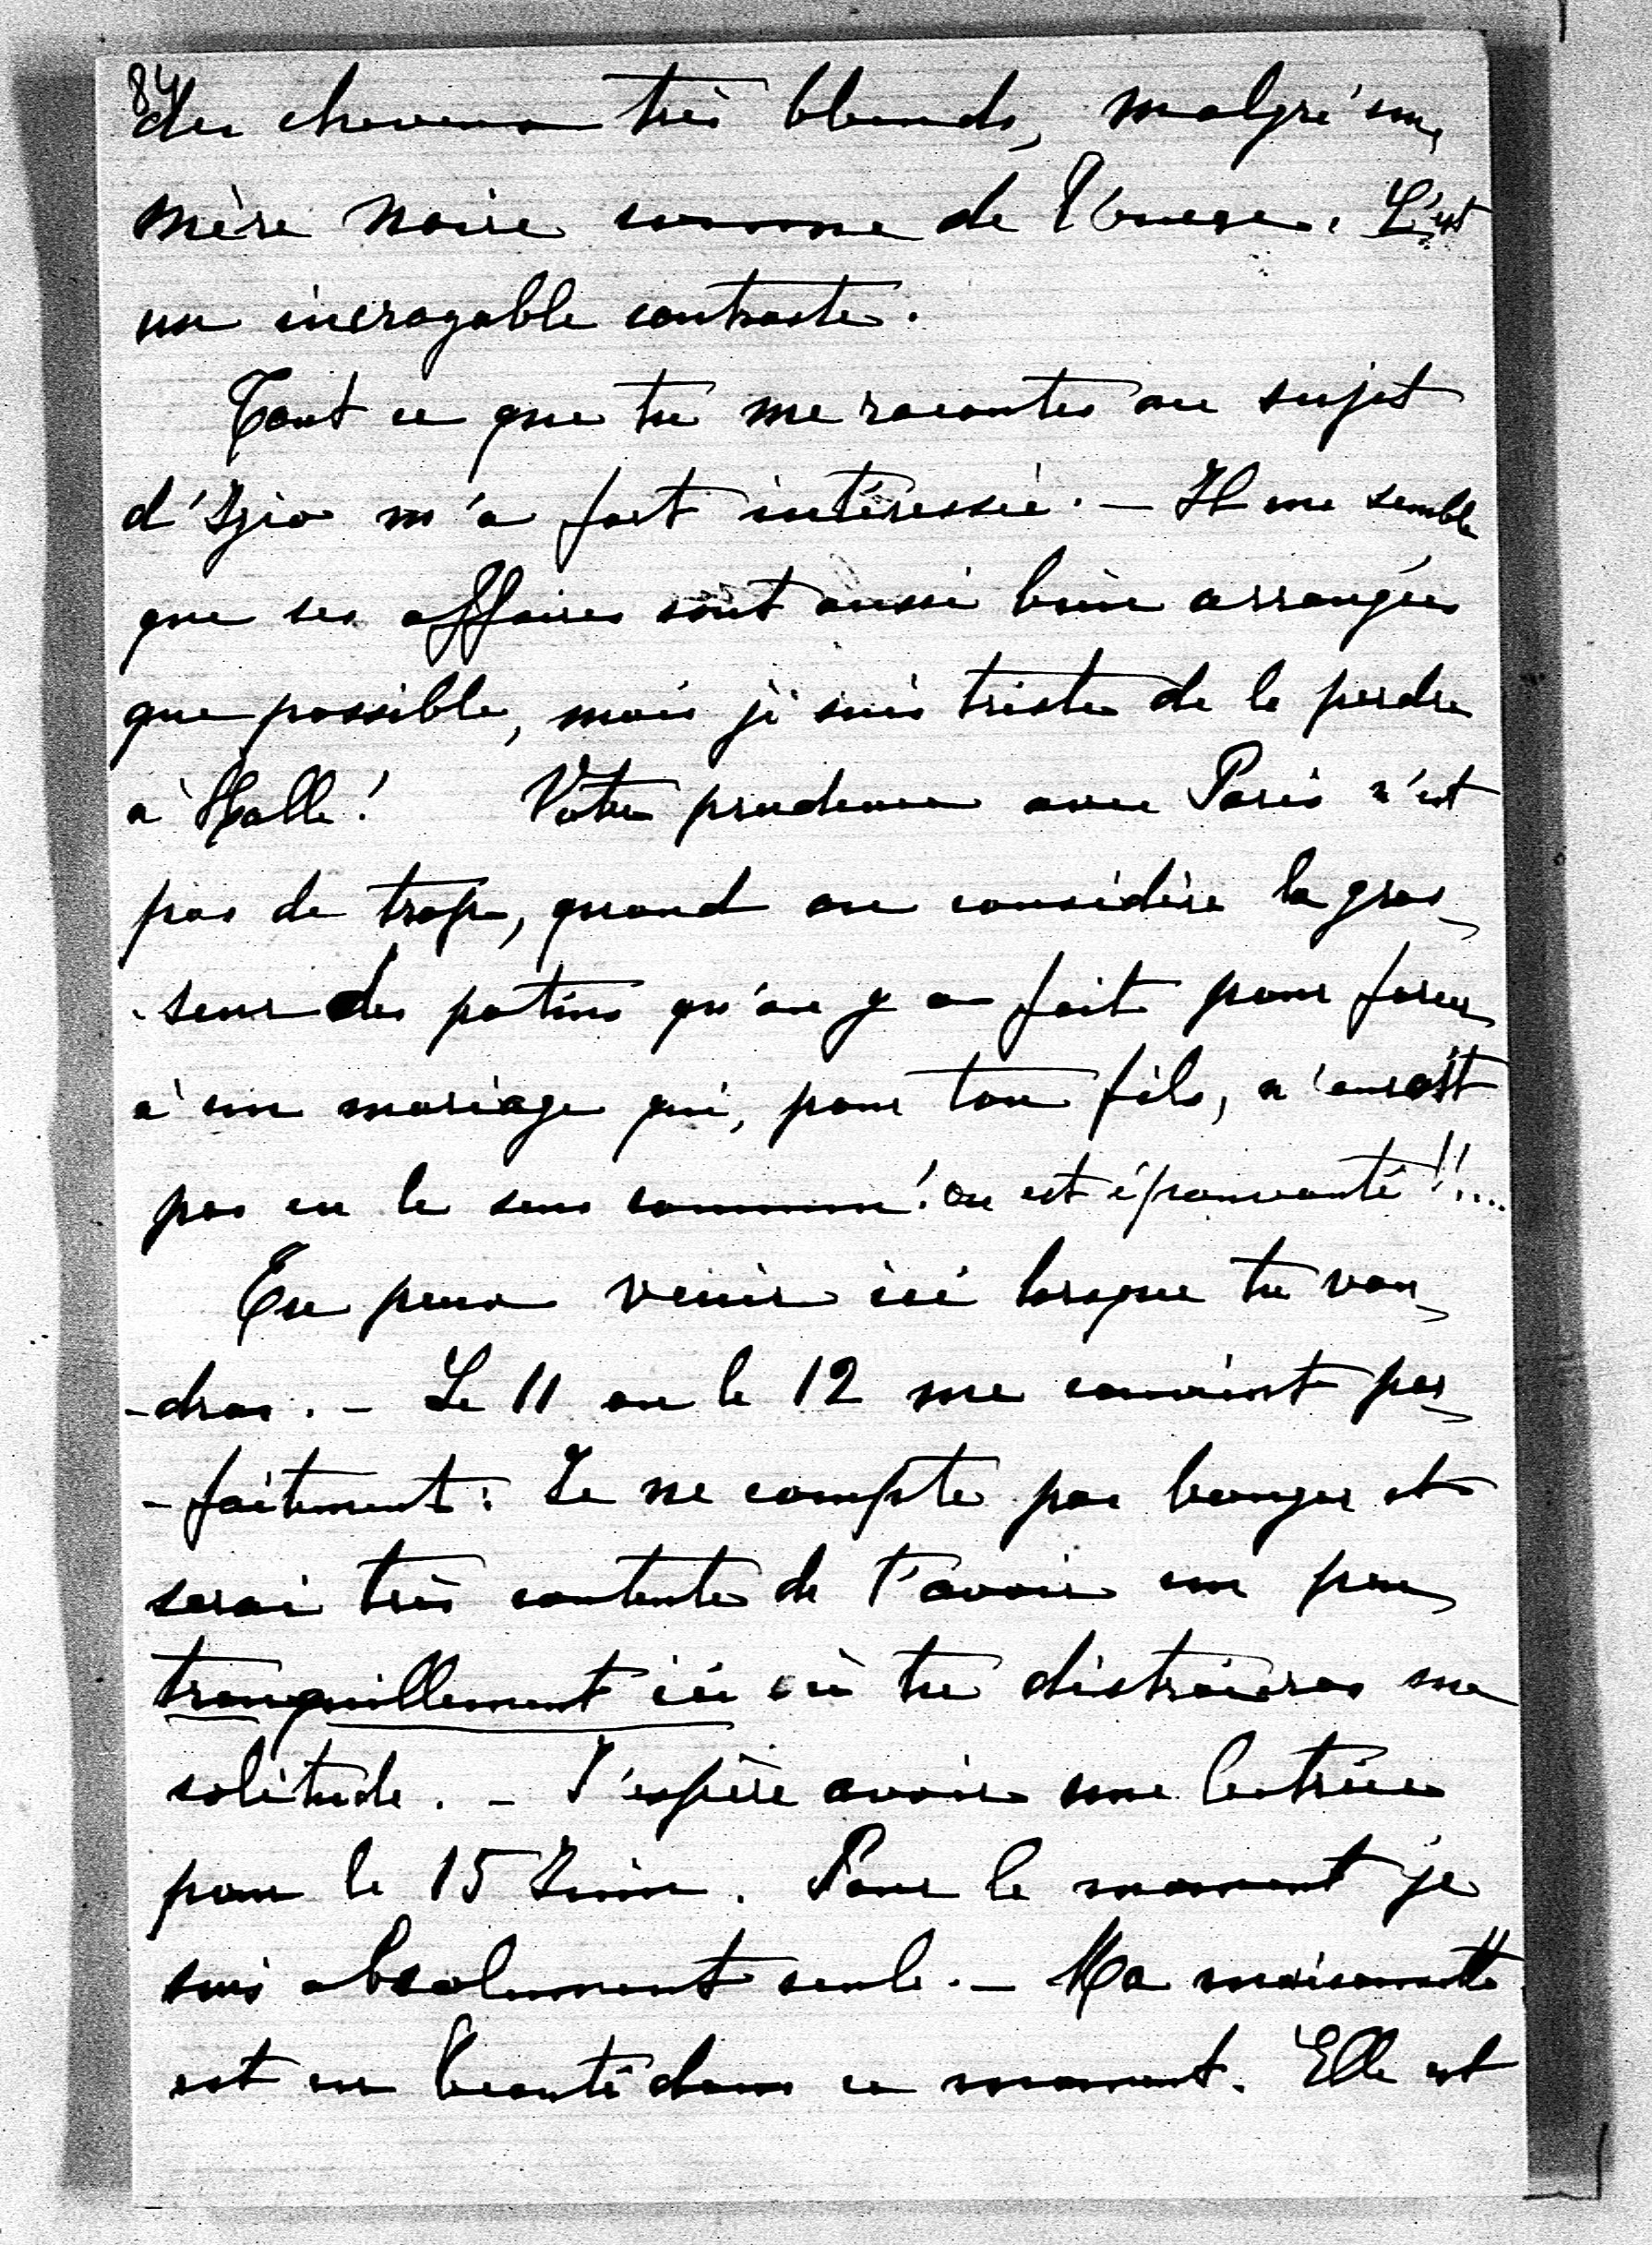 84
des cheveux très blonds, malgré une
mère noire comme de l'encre. C'est
un incroyable contraste.
Tout ce que tu me racontes au sujet
d'Izio m'a fort intéressée. — Il me semble
que ses affaires sont aussi bien arrangées
que possible, mais je suis triste de le perdre
à Halle! Votre prudence avec Paris n'est
pas de trop, quand on considère la gros-
-seur des potins qu'on y a fait pour forcer
à un mariage qui, pour ton fils, n'aurait
pas eu le sens commun! on est épouvanté!!...
Tu peux venir ici lorsque tu vou-
-dras. — Le 11 ou le 12 me convient par-
-faitement: Je ne compte pas bouger et
serai très contente de t'avoir un peu
tranquillement ici où tu distrairas ma
solitude. — J'espère avoir une lectrice
pour le 15 Juin. Pour le moment je
suis absolument seule. — Ma maisonnette
est en beauté dans ce moment. Elle est